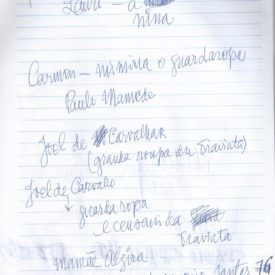 Laura — a
nina
Carmen — menina o guardaropa
Paulo Mamede
Joel de Carvalhar
(granka roupa da Traviata)
Joel de Carvalho
guardaropa
e cenario da
Traviata
mamãe Alzira
Santos 76